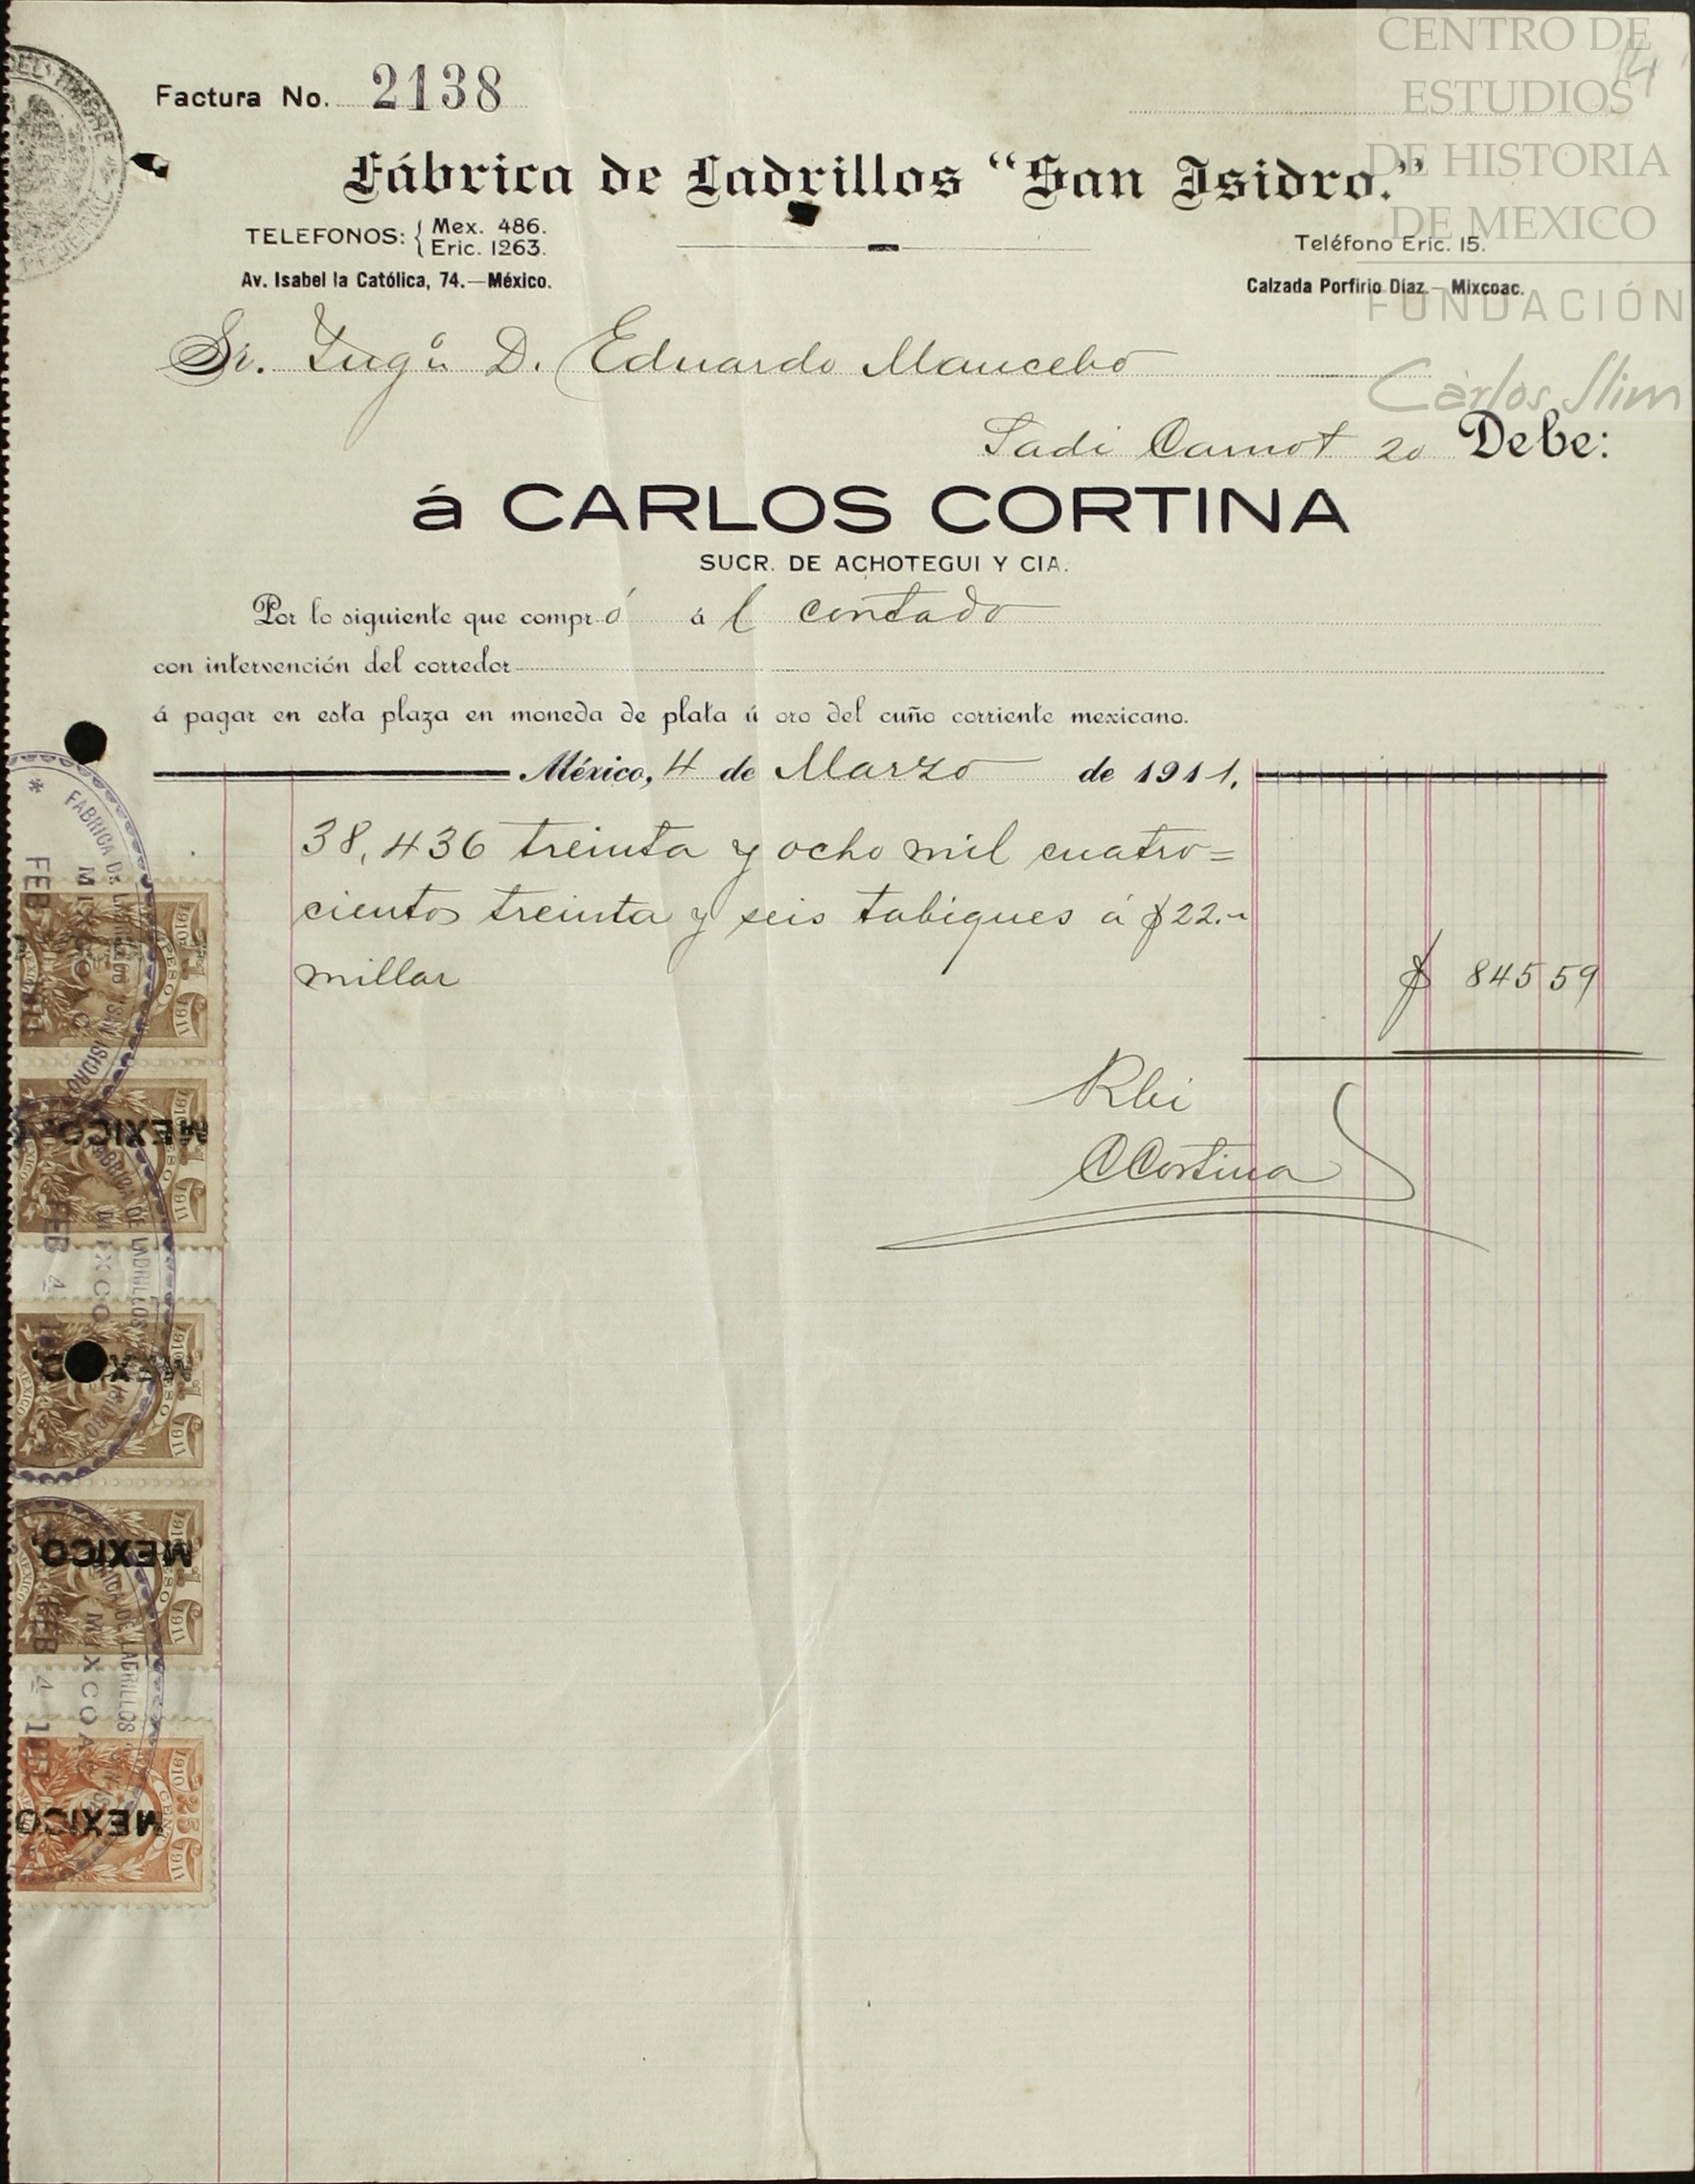 CENTRO DE
ESTUDIOS
DE HISTORIA
DE MEXICO
FUNDACIÓN
Carlos Slim
Factura No. 2138
Fábrica de Ladrillos "San Isidro."
TELEFONOS: { Mex. 486.
Eric. 1263.
Av. Isabel la Católica, 74.—México.
Teléfono Eric. 15.
Calzada Porfirio Díaz.—Mixcoac.
Sr. Ingº D. Eduardo Mancebo
Sadi Carnot 20 Debe:
á CARLOS CORTINA
SUCR. DE ACHOTEGUI Y CIA.
Por lo siguiente que compró ál contado
con intervención del corredor
á pagar en esta plaza en moneda de plata ú oro del cuño corriente mexicano.
México, 4 de Marzo de 1911.
38,436 treinta y ocho mil cuatro=
cientos treinta y seis tabiques á $22.—
millar $ 845 59
Rbí
CCortina
FABRICA DE LADRILLOS "SAN ISIDRO"
MIXCOAC
FEB 4 1911
MEXICO
FABRICA DE LADRILLOS
MIXCOAC
FEB 4
MEXICO,
LADRILLOS
MIXCOAC
FEB 4 1911
MEXICO
1910 1911
25 CENT